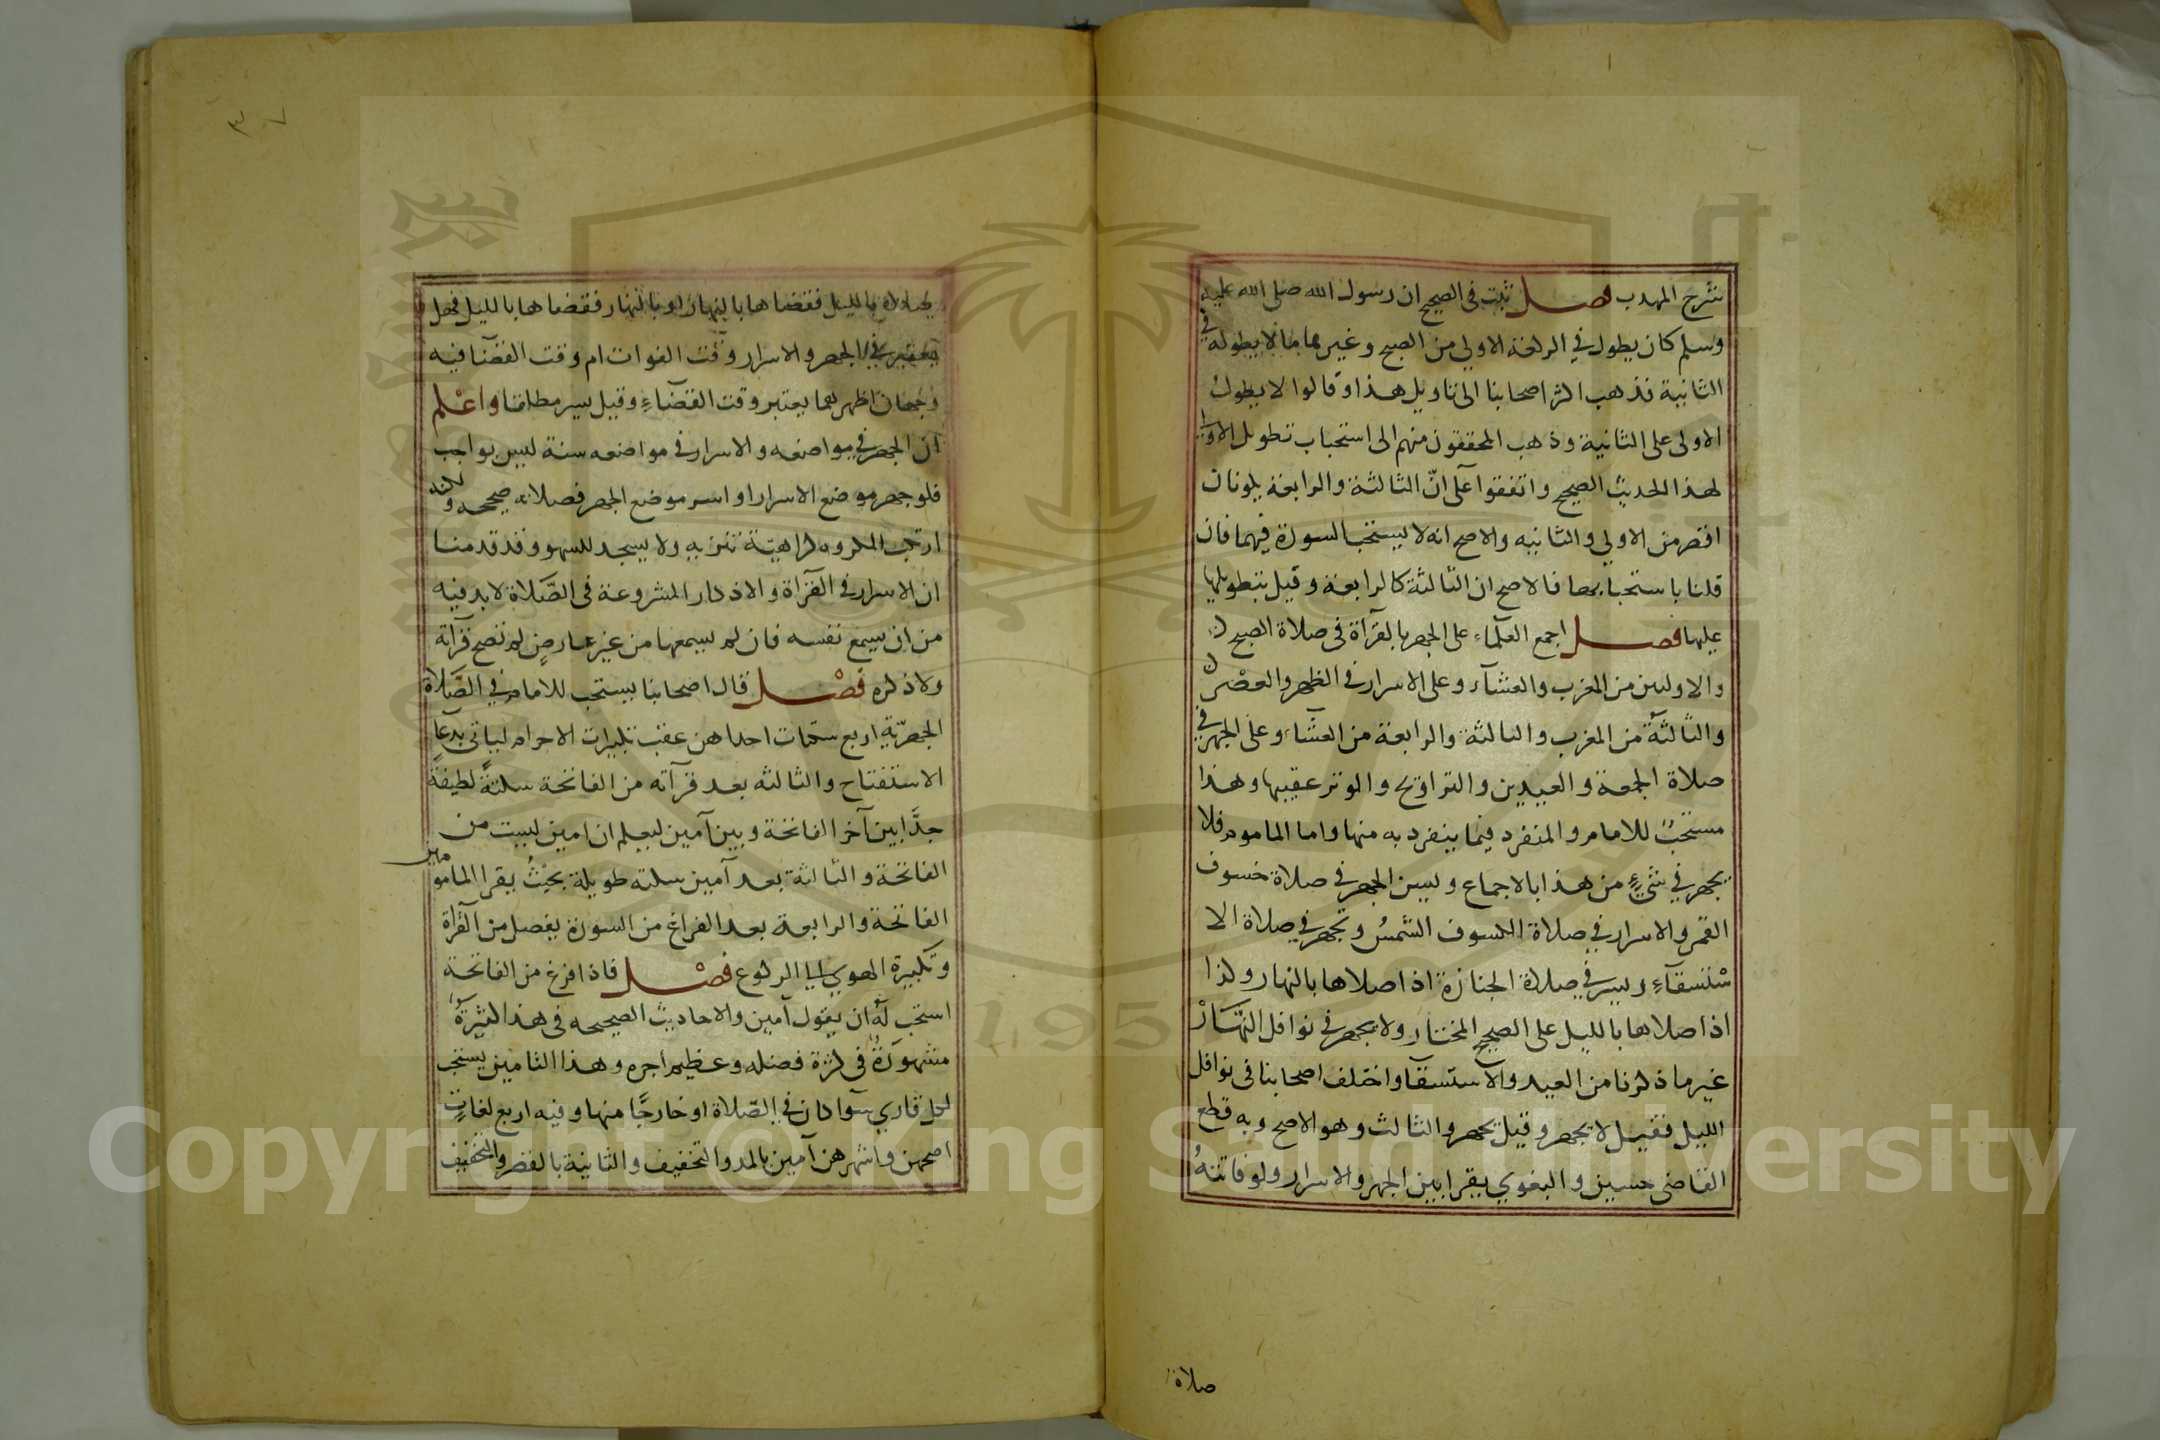 شرح المهدب فصل ثبت في الصحيح ان رسول الله صلى الله عليه
وسلم كان يطول في الركعة الاولي من الصبح وغيرها ما لا يطوله في
الثانية فذهب اكثر اصحابنا الى تاويل هذا وقالوا لا يطول
الاولى على الثانية وذهب المحققون منهم الى استحباب تطويل الاولي
لهذا الحديث الصحيح واتفقوا على انّ الثالثة والرابعة يكونان
اقصر من الاولي والثانيه والاصح انه لا يستحب السورة فيهما فان
قلنا باستحبابها فالاصح ان الثالثة كالرابعة وقيل بتطويلها
عليها فصل اجمع العلماء على الجهر بالقرآة في صلاة الصبح
والاوليين من المغرب والعشآء وعلى الاسرار في الظهر والعصر
والثالثة من المغرب والثالثة والرابعة من العشاء وعلى الجهر في
صلاة الجمعة والعيدين والتراويح والوتر عقيبها وهذا
مستحبٌ للامام والمنفرد فيما ينفرد به منها واما الماموم فلا
يجهر في شيءٍ من هذا بالاجماع ويسن الجهر في صلاة خسوف
القمر والاسرار في صلاة الكسوف الشمس ويجهر في صلاة الا
ستسقآءِ ويسر في صلاة الجنازة اذا صلاها بالنهار وكذا
اذا صلاها بالليل على الصحيح المختار ولا يجهر في نوافل النهار
غير ما ذكرنا من العيد والاستسقآ واختلف اصحابنا في نوافل
الليل فقيل لا يجهر وقيل يجهر والثالث وهو الاصح وبه قطع
القاضى حسين والبغوي يقرا بين الجهر والاسرار ولو فاتته
صلاة
٣٧
صلاة بالليل فقضاها بالنهار او بالنهار فقضاها بالليل فهل
يعتبر في الجهر والاسرار وقت الفوات ام وقت القضآ فيه
وجهان اظهرهما يعتبر وقت القضآءِ وقيل يسر مطلقا واعْلم
ان الجهر في مواضعه والاسرار في مواضعه سنة ليس بواجب
فلو جهر موضع الاسرار او اسر موضع الجهر فصلاته صحيحه ولكنه
ارتكب المكروه كراهيّة تنزيه ولا يسجد للسهو وقد قدمنا
ان الاسرار في القرآة والاذكار المشروعة في الصَّلاة لابد فيه
من ان يسمع نفسه فان لم يسمعها من غير عارضٍ لم تصح قرآته
ولا ذكره فصْل قال اصحابنا يستحب للامام في الصَّلاة
الجهرّية اربع سكتات احداهن عقب تكبيرات الاحرام لياتي بدعآءِ
الاستفتاح والثالثه بعد قرآته من الفاتحة سكتةً لطيفة
جدًّا بين آخر الفاتحة وبين آمين ليعلم ان امين ليست من
الفاتحة والثالثة بعد آمين سكته طويلة بحيْثُ يقرا المامومين
الفاتحة والرابعة بعد الفراغ من السورة يفصل من القرآة
وتكبيرة الهوي الي الركوع فصْل فاذا فرغ من الفاتحة
استحب لهُ ان يقول آمين والاحاديث الصحيحه في هذا كثيرةٌ
مشهورةٌ في كثرة فضله وعظيم اجره وهذا التامين يستحب
لكل قاري سوآ كان في الصّلاة او خارجًا منها وفيه اربع لغاتٍ
اصحهن واشهرهن آمين بالمد والتخفيف والثانية بالقصر والتخفيف
Copyright © King Saud University
1957